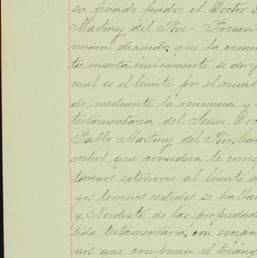 su finado padre el Doctor D
Martinez del Rio - Presen
que la
ta inserta únicamente se diri
cual es el límite por el rumb
de, mediante la renuncia y
testamentaria del Señor Doc
Pablo Martinez del Rio, ha
rechos que considera le corres
terrenos exteriores al límite a
yos terrenos cedidos se halla
y Nordeste de las propiedade
dida testamentaria, con escepc
nos que componen el triáng